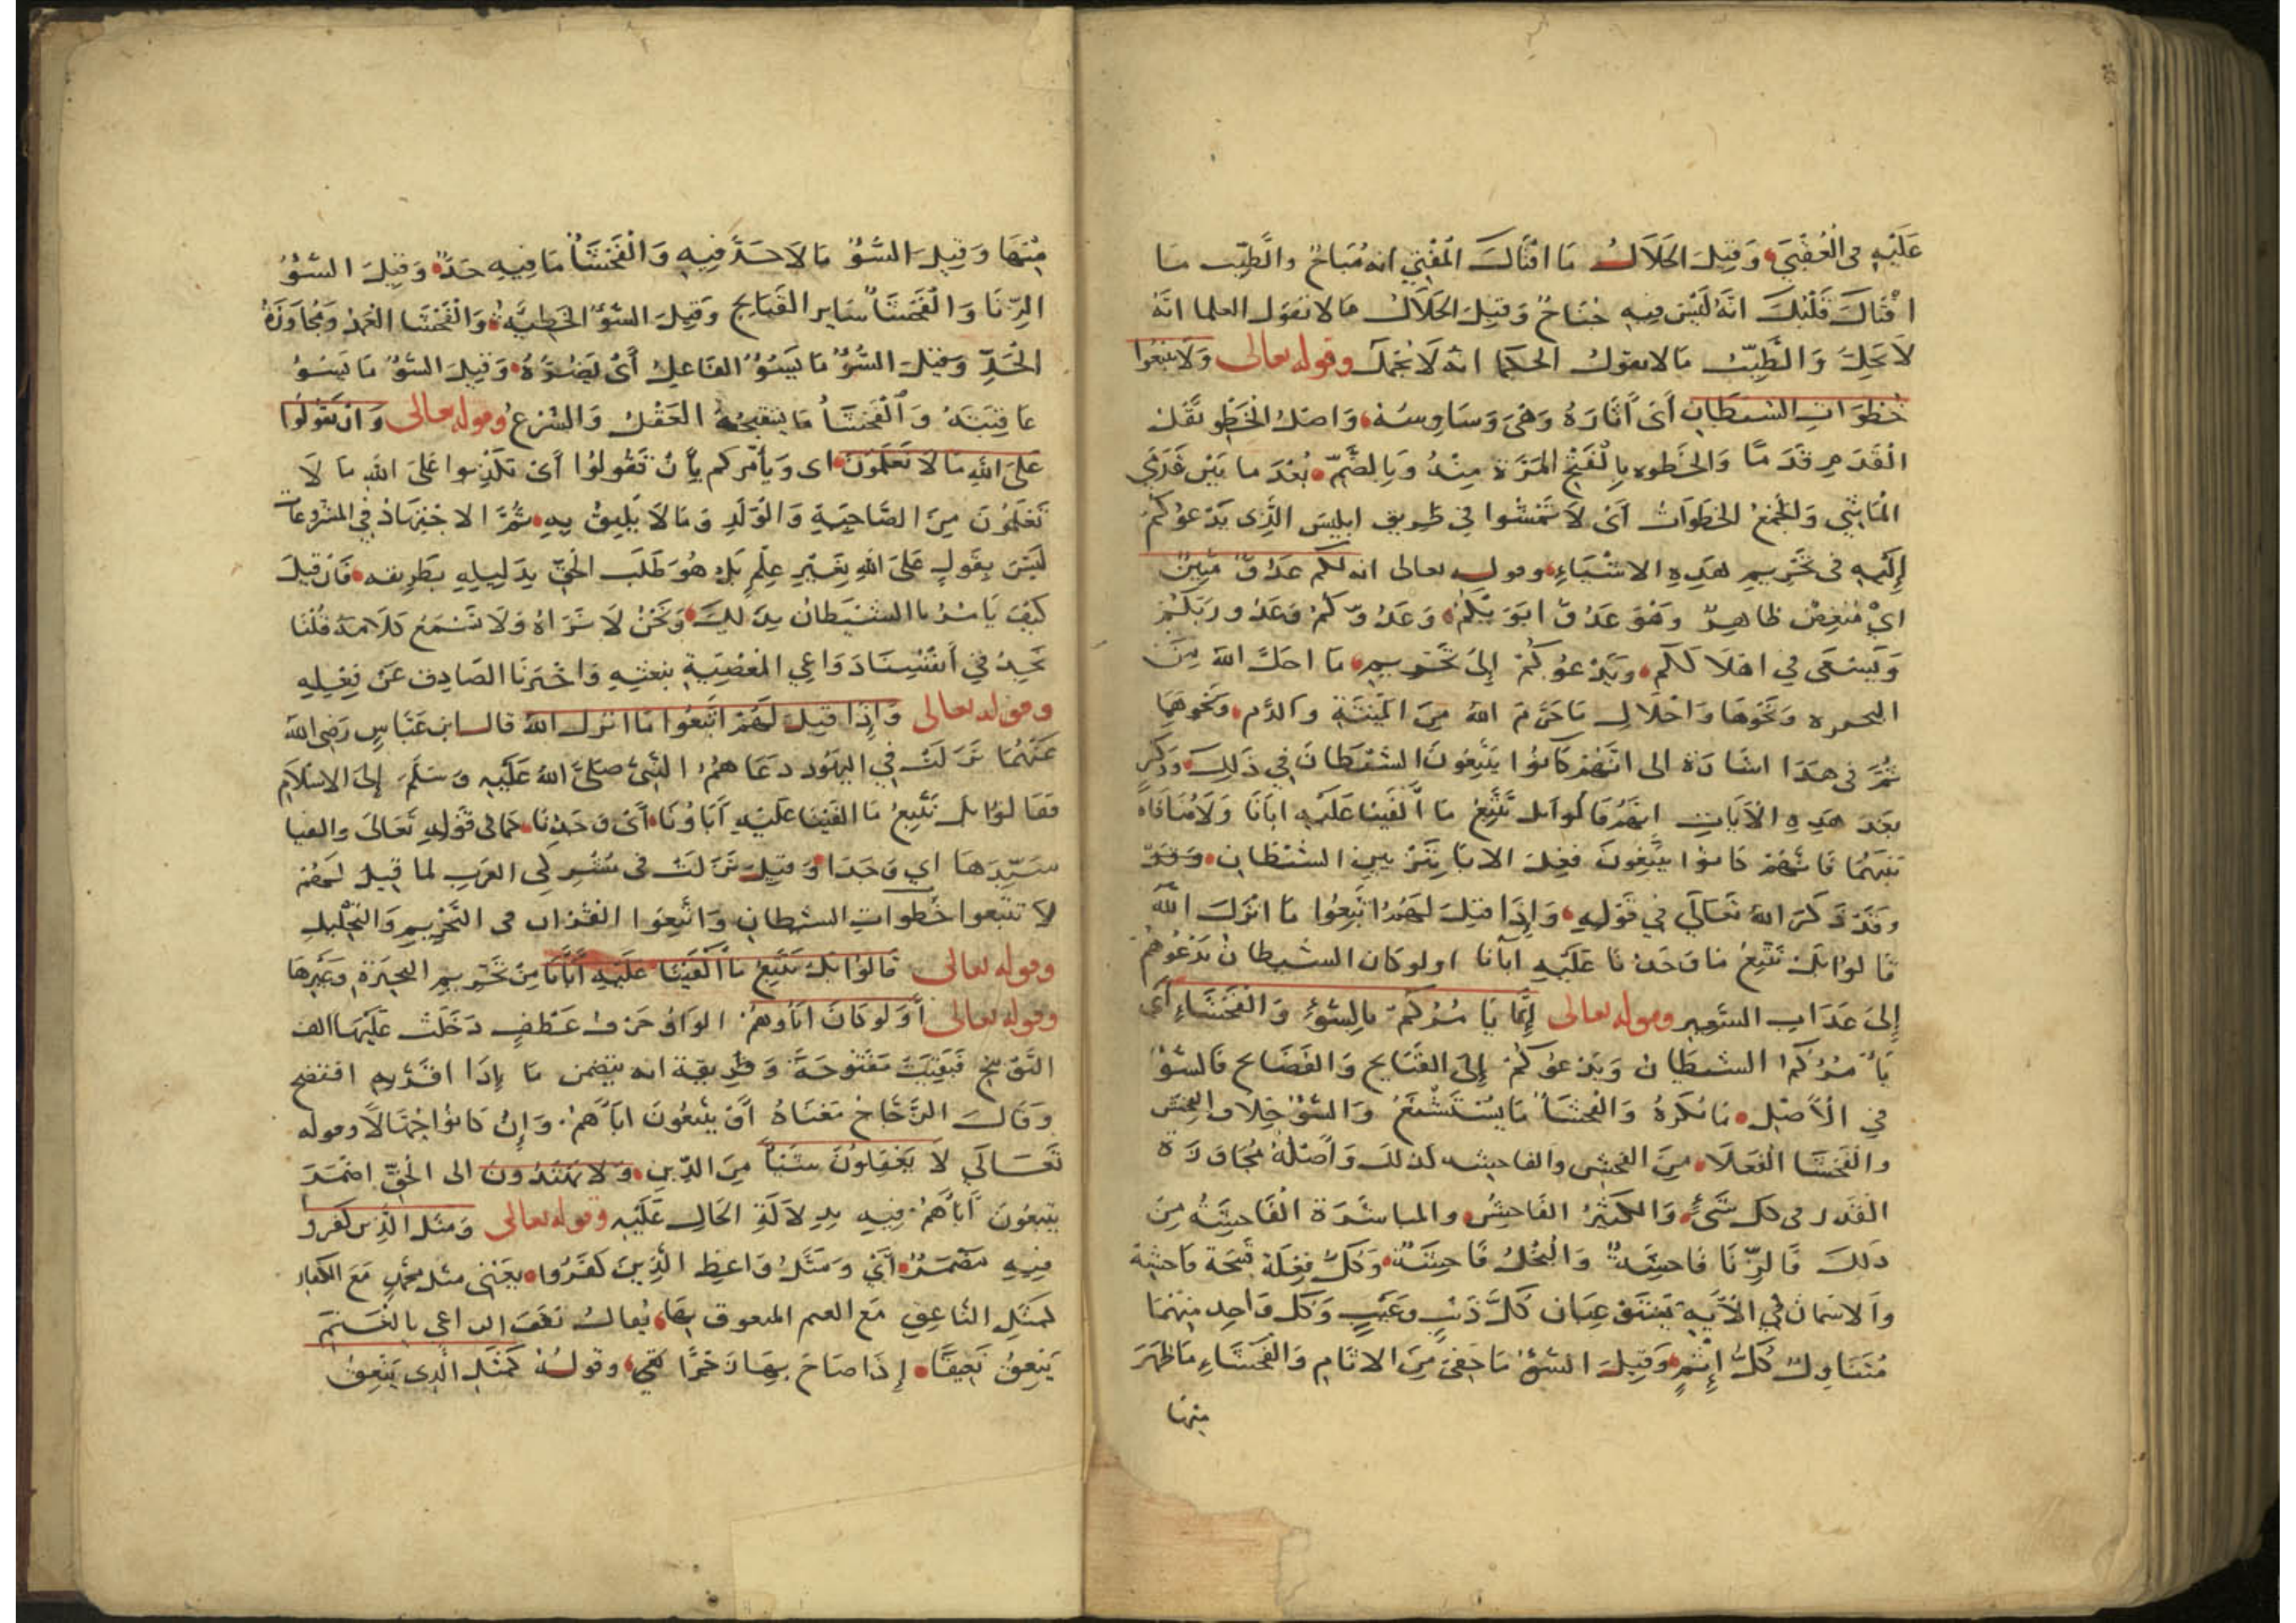 عَلَيْهِ فى الْعُقْبَى وَقِيلَ الحَلَالُ مَا افْتَاكَ الْمُفْتِي انه مُبَاحٌ والطَّيِّب مَا
افْتَاكَ قَلْبُكَ انَّهُ لَيْسَ فِيهِ جُنَاحٌ وَقِيلَ الحَلَالُ مَا لا تقول العلما انَّهُ
لَا يَحِلُّ وَالطَّيِّبُ مَا لا يقول الحكما انه لَا يَجْمُلُ وقوله تعالى وَلَا تَتَّبِعُوا
خُطُوَاتِ الشيطَانِ أَىْ آثَارَهُ وَهْىَ وَسَاوِسُهُ وَاصل الخَطْوِ نَقْلُ
الْقَدَمِ قَدَمًا وَالخَطْوه بِالْفَتْحِ الْمَرَّة مِنْهُ وَبِالضَّمِّ بُعْدَ ما بَيْنَ قَدَمَيِ
الْمَاشِي وَالْجَمْعُ الخُطُوَاتُ أَىْ لَا تَمْشُوا فِي طَرِيقِ ابليسَ الَّذِى يَدْعُوكُمْ
إِلَيْهِ فى تَحْرِيمِ هَذِهِ الاشْيَاءِ وقوله تعالى انه لكم عَدُوٌّ مُبِينٌ
اىْ مُبْغِضٌ ظَاهِرٌ وَهْوَ عَدُوُّ ابَوَيْكُمْ وَعَدُوُّكُمْ وَعَدُو رَبِّكُمْ
وَيَسْعَى فِي اهْلَاكِكُمْ وَيَدْعُوكُمْ إِلَىْ تَحْرِيمِ مَا احَلَّ اللهُ مِنَ
البحيره وَنَحْوِهَا وَاحْلَالِ مَا حَرَّمَ اللهُ مِنَ الْمَيْتَةِ وَالدَّم وَنَحْوِهَا
ثُمَّ فى هَذَا اشَارَة الى انَّهُمْ كَانُوا يَتَّبِعُونَ الشَّيْطَانَ فِي ذَلِكَ وَذَكَرَ
بَعْدَ هَذِهِ الْآيَاتِ انَّهُمْ قَالُوا بل نَتَّبِعُ مَا أَلْفَيْنَا عَلَيْهِ ابَانَا وَلَا مُنَافَاةَ
بَيْنَهُمَا فَانَّهُمْ كَانُوا يَتَّبِعُونَ فِعْلَ الابَا بِتَزْيينِ الشَّيْطَانِ وَقَدْ
وَقَدْ ذَكَرَ اللهُ تَعَالَي فِي قَوْلِهِ وَإِذَا قِيلَ لَهُمُ اتَّبِعُوا مَا انْزَلَ اللَّهُ
قَالُوا بَلْ نَتَّبِعُ مَا وَجَدْنَا عَلَيْهِ آبَانَا اولو كان الشيطان يَدْعُوهُمْ
إِلىَ عَذَابِ السَّعِيرِ وقوله تعالى إِنَّمَا يَا مُرُكُمْ بِالسُّوءِ وَالْفَحْشَاءِ أَي
يَأْمُرُكُمُ الشيطان وَيَدْعُوكُمْ إِلىَ القَبَايِحِ وَالفَضَايحِ فَالسُّوْ
فِي الْأَصْلِ مَا يُكْرَهُ وَالْفَحْشَا مَا يُسْتَشْنَعُ وَالسُّوْ خِلَافُ الحسن
والْفَحْشَا الْفَعْلَا مِنَ الفُحْشِ والفاحشه كذلك وَأَصْلُهُ مُجَاوَزَة
القَدْر فى كل شَىْءٍ وَالكَثِيْرُ الفَاحِشُ والمباشَرَة الْفَاحِشَةُ مِنْ
ذَلِكَ فَالزِّنَا فَاحِشَةٌ وَالْبُخْلُ فَاحِشَةٌ وَكُلُّ فِعْلَة قَبِيْحَة فَاحِشَة
وَالاسْمَانُ فِي الْآيَةِ يَسْتَوْعِبَانِ كُلَّ ذَنْبٍ وَعَيْبٍ وَكُلُّ وَاحِدٍ مِنْهُمَا
مُتَنَاوِلٌ كُلَّ إِثْمٍ وَقِيلَ السُّوْ مَا خَفِىَ مِنَ الاثَامِ وَالْفَحْشَاءِ مَا ظَهَرَ
منها
مِنْهَا وَقِيلَ السُّوْ مَا لَا حَدَّ فِيهِ وَالْفَحْشَا مَا فِيهِ حَدٌّ وَقِيلَ السُّوْ
الزِّنَا وَالْفَحْشَا سَاير القَبَايحِ وَقِيلَ السُّوْ الخَطِيَّةُ وَالْفَحْشَا العَمْدُ وَمُجَاوَزَةُ
الْحَدِّ وَقِيلَ السُّوْ مَا يَسُوْ الفَاعِلَ أَىْ يَضُرُّهُ وَقِيلَ السُّوْ مَا يَسُوْ
عَاقِبَتَهُ وَالْفَحْشَا مَا يَسْتَقْبِحُهُ العَقْلُ وَالشَّرْعُ وقوله تعالى وَانْ تَقُولُوا
عَلَىَ اللهِ مَا لَا تَعْلَمُونَ اى وَيَأْمُركم بِأَنْ تَقُولُوا أَىْ تَكْذِبُوا عَلَىَ اللهِ مَا لَا
تَعْلَمُونَ مِنَ الصَّاحِبَةِ وَالْوَلَدِ وَمَا لَا يَلِيقُ بِهِ ثُمَّ الاجْتِهَادُ فِي الْمَشْرُوعَات
لَيْسَ بِقَوْلٍ عَلَىَ اللهِ بِغَيْرِ عِلْمٍ بَلْ هُوَ طَلَبُ الْحَقِّ بِدَلِيلِهِ بِطَرِيقِه فَان قِيلَ
كَيْفَ يَامُرُنا الشَّيْطَانُ بِذَلِكَ وَنَحْنُ لَا نَرَاهُ وَلَا نَسْمَعُ كَلَامَهُ قُلْنَا
نَجِدُ فِي أَنْفُسِنَا دَوَاعِي الْمَعْصِيَةِ بِبَعْثِهِ وَاخْبَرَنَا الصَّادِق عَنْ فِعْلِهِ
وقوله تعالى وَإِذَا قِيلَ لَهُمُ اتَّبِعُوا مَا انْزَلَ اللهُ قَالَ ابن عَبَّاسٍ رَضِىَ اللهُ
عَنْهُمَا نَزَلَتْ فِي اليَهُود دَعَاهُمُ النَّبِىُّ صَلَىَّ اللهُ عَلَيْهِ وَسَلَّمَ إِلىَ الاسْلَامِ
فَقَالُوا بَلْ نَتَّبِعُ مَا الفَيْنَا عَلَيْهِ آبَاؤنَا أَىْ وَجَدْنَا كَمَا فى قَوْلِهِ تَعَالَىَ والفيا
سَيِّدَهَا اي وَجَدَا وَقِيلَ نَزَلَتْ فى مُشْرِكِى العَرَبِ لما قيل لَهُمْ
لَا تتَّبعوا خُطُواتِ الشيطانِ وَاتَّبِعُوا القُرْانَ فى التَّحْرِيمِ وَالتَّحْلِيلِ
وقوله تعالى قَالُوا بَلْ نَتَّبِعُ مَا أَلْفَيْنَا عَلَيْهِ أَبَانَا مِنْ تَحْرِيمِ البحيرَةِ وَغَيْرِهَا
وقوله تعالى أَوَلَوْ كَانَ ابَاؤهُمْ الوَاوُ حَرْفُ عَطْفٍ دَخَلَتْ عَلَيْهَا الف
التَّوْبيخِ فَبَقِيَتْ مَفْتُوحَةً وَطَرِيقة انه يتضمن مَا إِذَا اقَرَّ به افتضح
وَقَالَ الزَّجَّاجُ مَعْنَاهُ أَوَ يَتَّبِعُونَ ابَآهُمْ وَإِنْ كَانُوا جُهَّالًا وقوله
تَعَالَي لَا يَعْقِلُونَ شَيْئًا مِنَ الدِّينِ وَلَا يَهْتَدُونَ الى الْحَقِّ اضْمَرَ
يَتَّبِعُونَ آبَآهُمْ فِيهِ بِدِلَالَةِ الحَالِ عَلَيْهِ وقوله تعالى وَمَثَلُ الَّذِينَ كَفَرُوا
فِيهِ مُضْمَرٌ أَيْ وَمَثَلُ وَاعِظِ الَّذِينَ كَفَرُوا يَعْنِى مثل مُحَمَّدٍ مَعَ الكفار
كَمَثَلِ النَّاعِقِ مَعَ الغنم المنعوق بِهَا يُقالُ نَعَقَ الراعى بِالْغَنَمِ
يَنْعِقُ نَعِيقًا إِذَا صَاحَ بِهَا زَجْرًا وقولُهُ كَمَثَلِ الَّذِى يَنْعِقُ